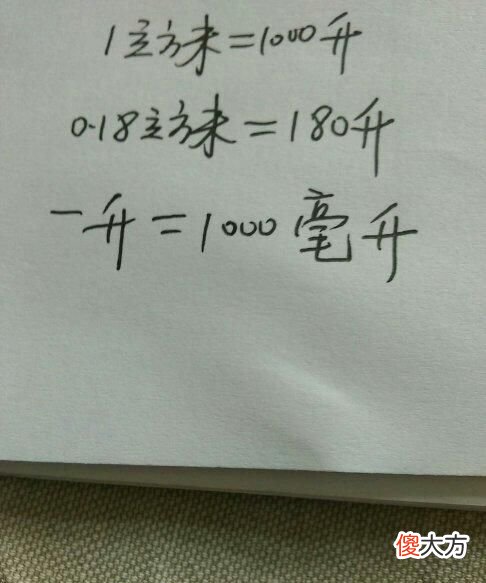 1立方米=1000升
0.18立方米=180升
一升=1000毫升
傻大方